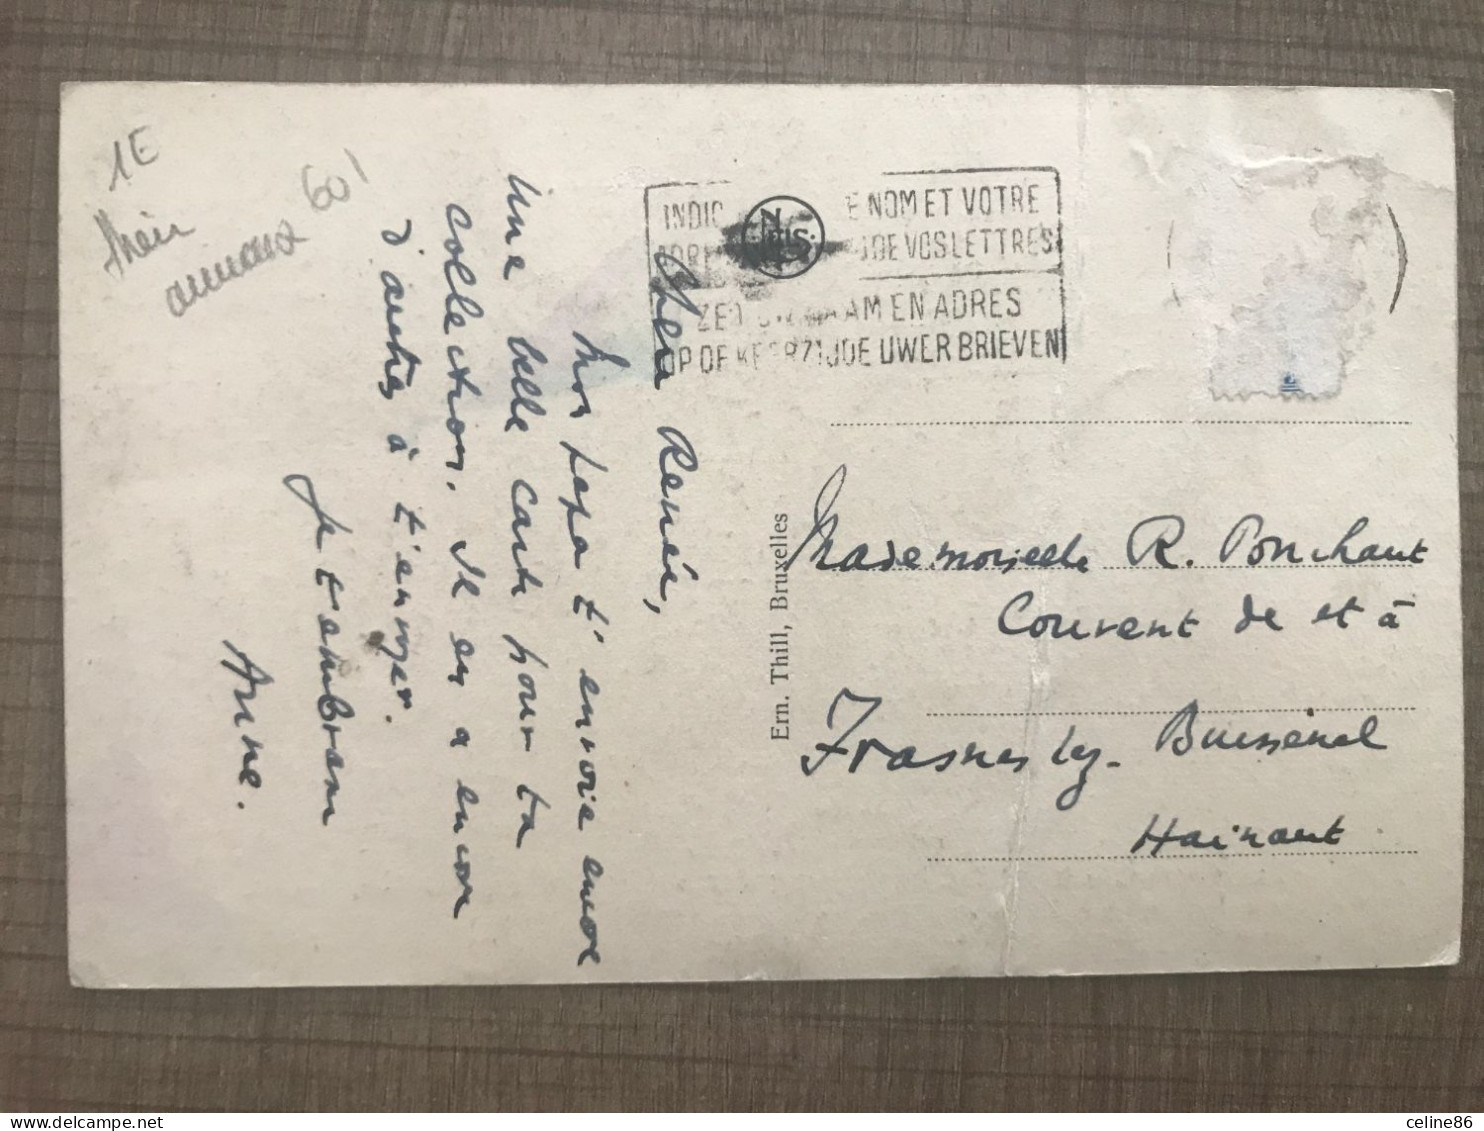 1E
animaux 60'
INDIQ E NOM ET VOTRE
ADRE DE VOS LETTRES
ZET UW NAAM EN ADRES
OP DE KEERZIJDE UWER BRIEVEN
NELS
Chère Renée,
Mon papa t'envoie encore
Une belle carte pour ta
collection. Il en a encore
d'autres à t'envoyer.
Je t'embrasse
Anne.
Ern. Thill, Bruxelles
Mademoiselle R. Ponchaut
Couvent de et à
Frasnes lez. Buissenal
Hainaut
celine86
delcampe.net